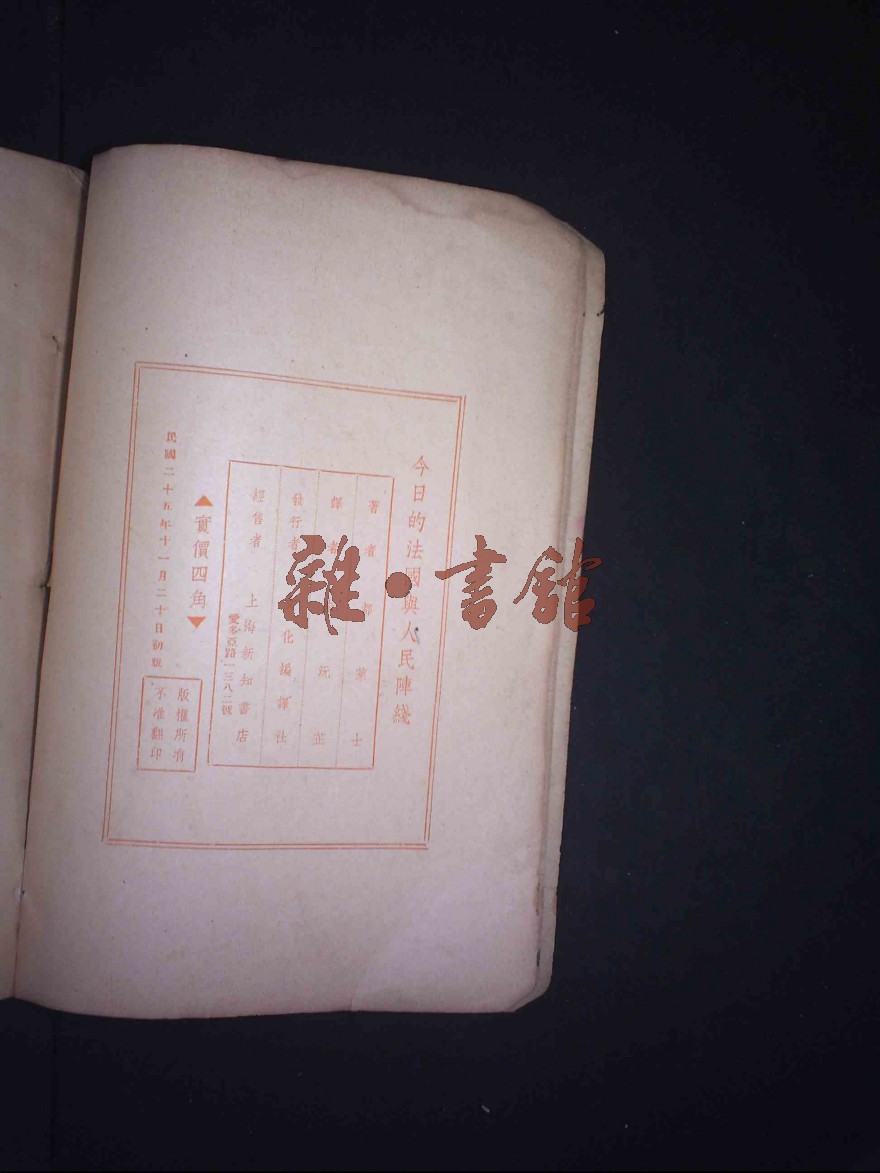 今日的法國與人民陣綫
著者 都 萊 士
譯者 阮 芷
發行者 化編譯社
經售者 上海新知書店
愛多亞路一三八二號
▲實價四角▼
民國二十五年十一月二十日初版
版權所有
不准翻印
雜·書館